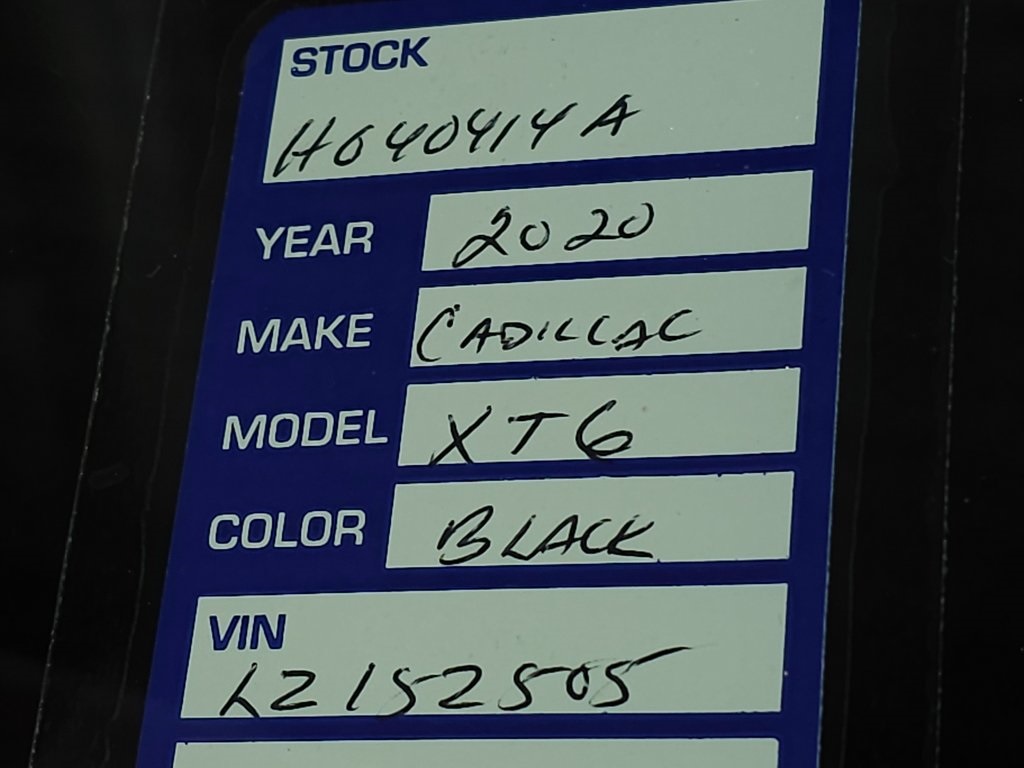 STOCK
H640414A
YEAR 2020
MAKE CADILLAC
MODEL XT6
COLOR BLACK
VIN
LZ152505